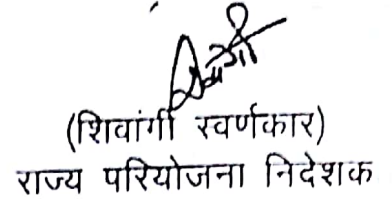 शिवांगी
(शिवांगी स्वर्णकार)
राज्य परियोजना निदेशक